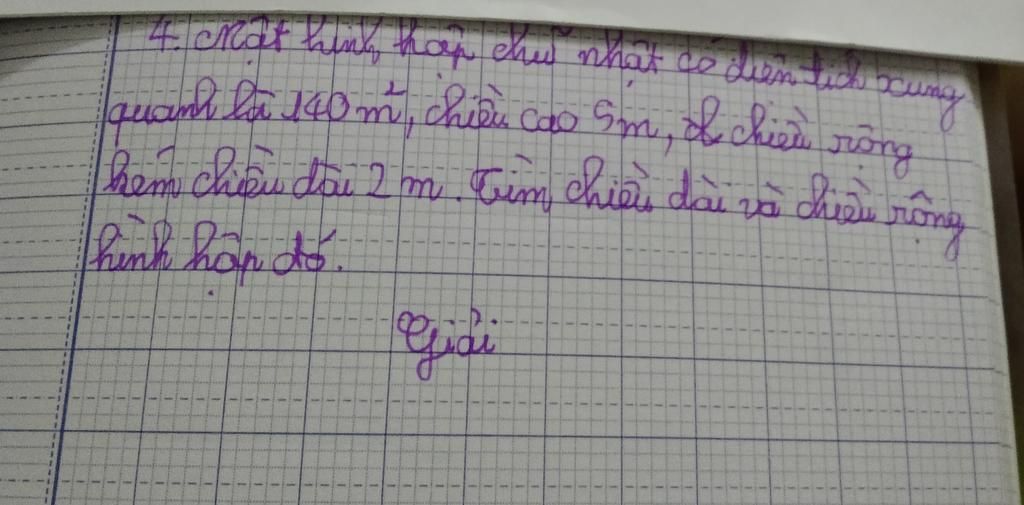 4. Một hình hộp chữ nhật có diện tích xung
quanh là 140 m², chiều cao 5m, chiều rộng
kém chiều dài 2 m. Tìm chiều dài và chiều rộng
hình hộp đó.
Giải